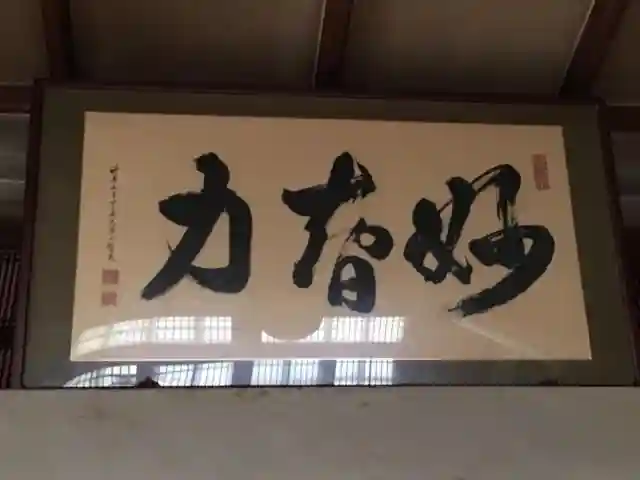 妙智力